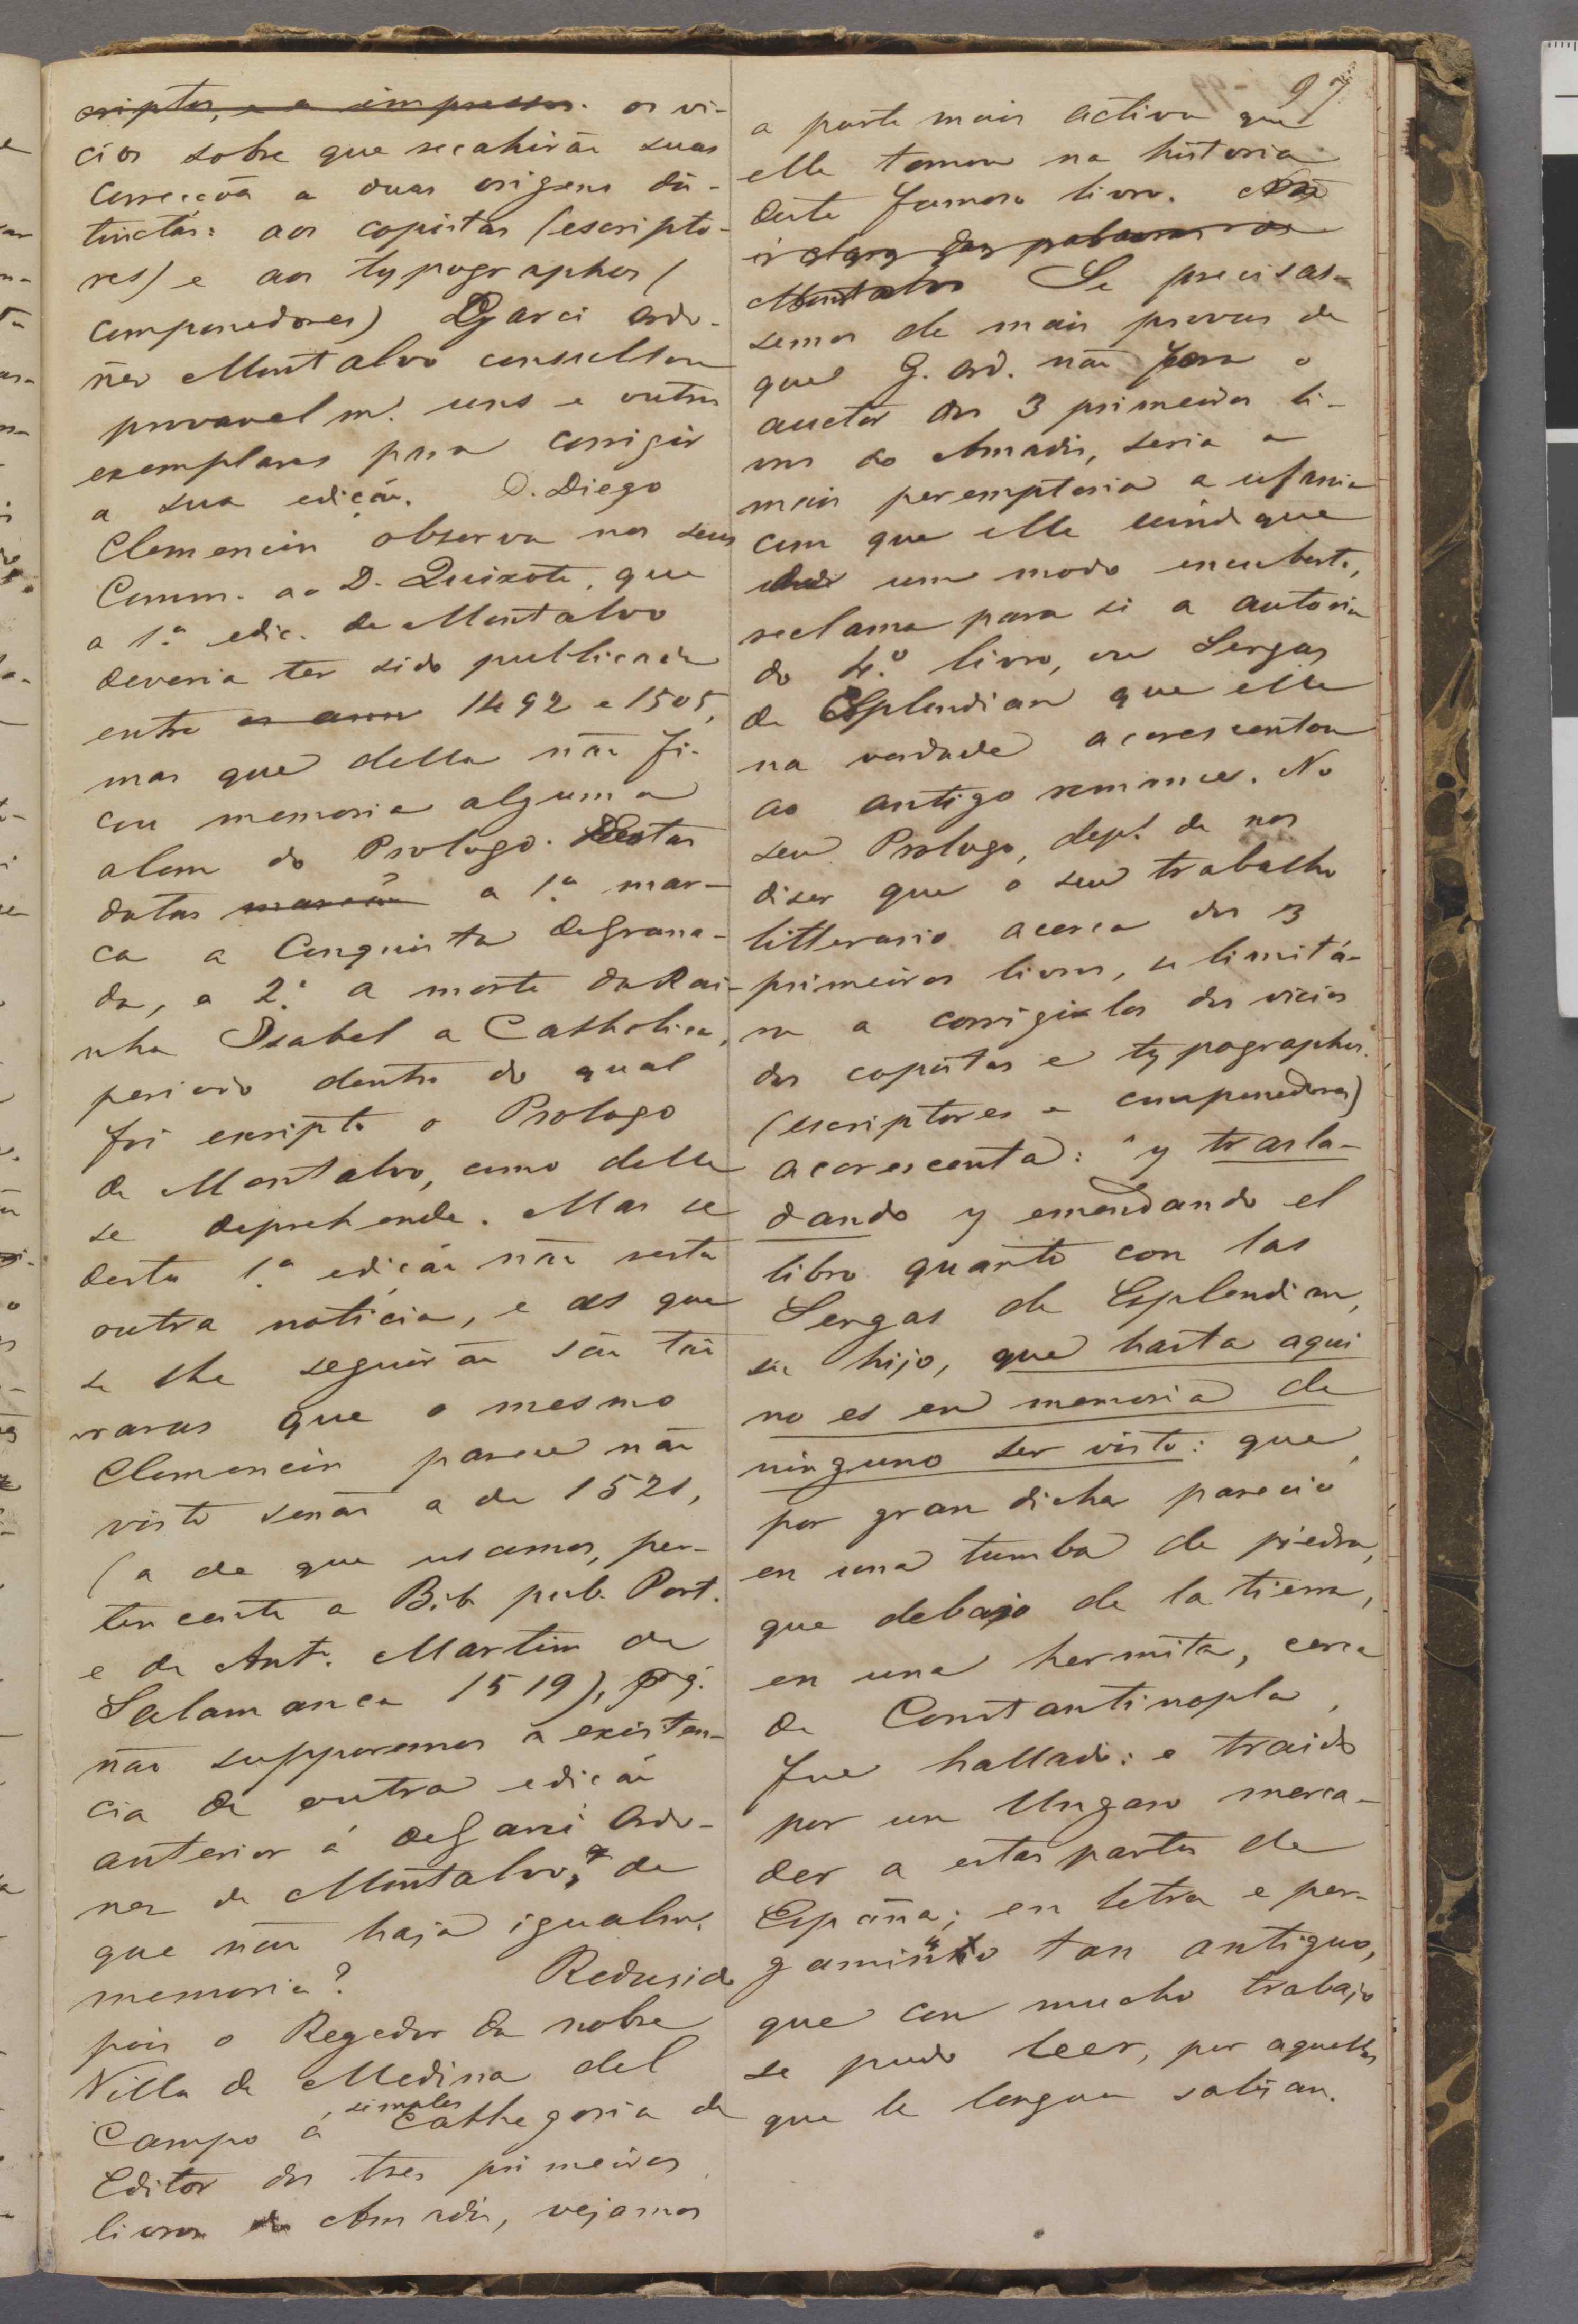 97
criptos, e a impressos. os vi-
cios sobre que recahirão suas
correcçõa a duas origens dis-
tinctas: aos copistas (escripto-
res) e aos typographos (
componedores) Garci Ordo-
ñes Montalvo consultou
provavelm. uns e outros
exemplares para corrigir
a sua edição. D. Diego
Clemencin observa nos seus
Comm. ao D. Quixote, que
a 1.ª edic. de Montalvo
deveria ter sido publicada
entre os annos 1492 e 1505,
mas que della não fi-
cou memoria alguma
alem do Prologo. Destas
datas marcão a 1.ª mar-
ca a Conquista de Grana-
da, a 2.ª a morte da Rai-
nha Isabel a Catholica,
periodo dentro do qual
foi escripto o Prologo
de Montalvo, como delle
se deprehende. Mas se
desta 1.ª edição não resta
outra noticia, e as que
se lhe seguirão são tão
raras que o mesmo
Clemencin parece não
visto senão a de 1521,
(a de que usamos, per-
tencente a Bib. pub. Port.
e de Ant.º Martim de
Salamanca 1519), pq.
não supporemos a existen-
cia de outra edição
anterior á de Garci Ordo-
nez de Montalvo, de
que não haja igualm.
memoria? Redusido
pois o Regedor da nobre
Villa de Medina del
Campo á simples Cathegoria de
Editor dos tres primeiros
livros do Amadis, vejamos
a parte mais activa que
elle tomou na historia
deste famoso livro. Não
é das palavras
Montalvo Se precisas-
semos de mais provas de
que G. Ord. não fora o
auctor dos 3 primeiros li-
vros do Amadis, seria a
mais peremptoria a ufania
com que elle aindaque
de um modo encuberto,
reclama para si a autoria
do 4.º livro, ou Sergas
de Esplendian que elle
na verdade acrescentou
ao antigo romance. No
seu Prologo, dep.s de nos
diser que o seu trabalho
litterario acerca dos 3
primeiros livros, se limitá-
ra a corrigilos dos vicios
dos copistas e typographos.
(escriptores e componedores)
acorescenta: "y trasla-
dando y emendando el
libro quarto con las
Sergas de Esplendian,
su hijo, que hasta aqui
no es en memoria de
ninguno ser visto: que
por gran dicha pareció
en una tumba de piedra,
que debajo de la tierra,
en una hermita, cerca
de Constantinopla,
fue hallado: e traido
por un Ungaro merca-
der a estas partes de
España; en letra e per-
gamino tan antiguo,
que con mucho trabajo
se pudo leer, por aquellos
que la lengua sabian.